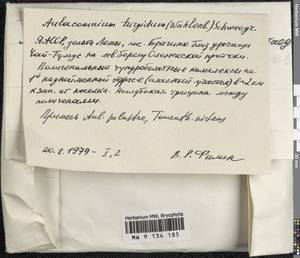 Aulacomnium turgidum (Wahlenb.) Schwaegr.
ЯАССР, дельта Лены, пос.
на лев. берегу Оленекской протоки.
Полигональные тундроболотные комплексы на
1й надпойменной террасе участок) в 2 км
к зап. от поселка. Неглубокая трещина между
полигонами.
Примесь Aul. palustre, Tomenth. nitens
20.8.1979 - I, 2
В. Р. Филин
Herbarium MW, Bryophyta
MW 9 134 185